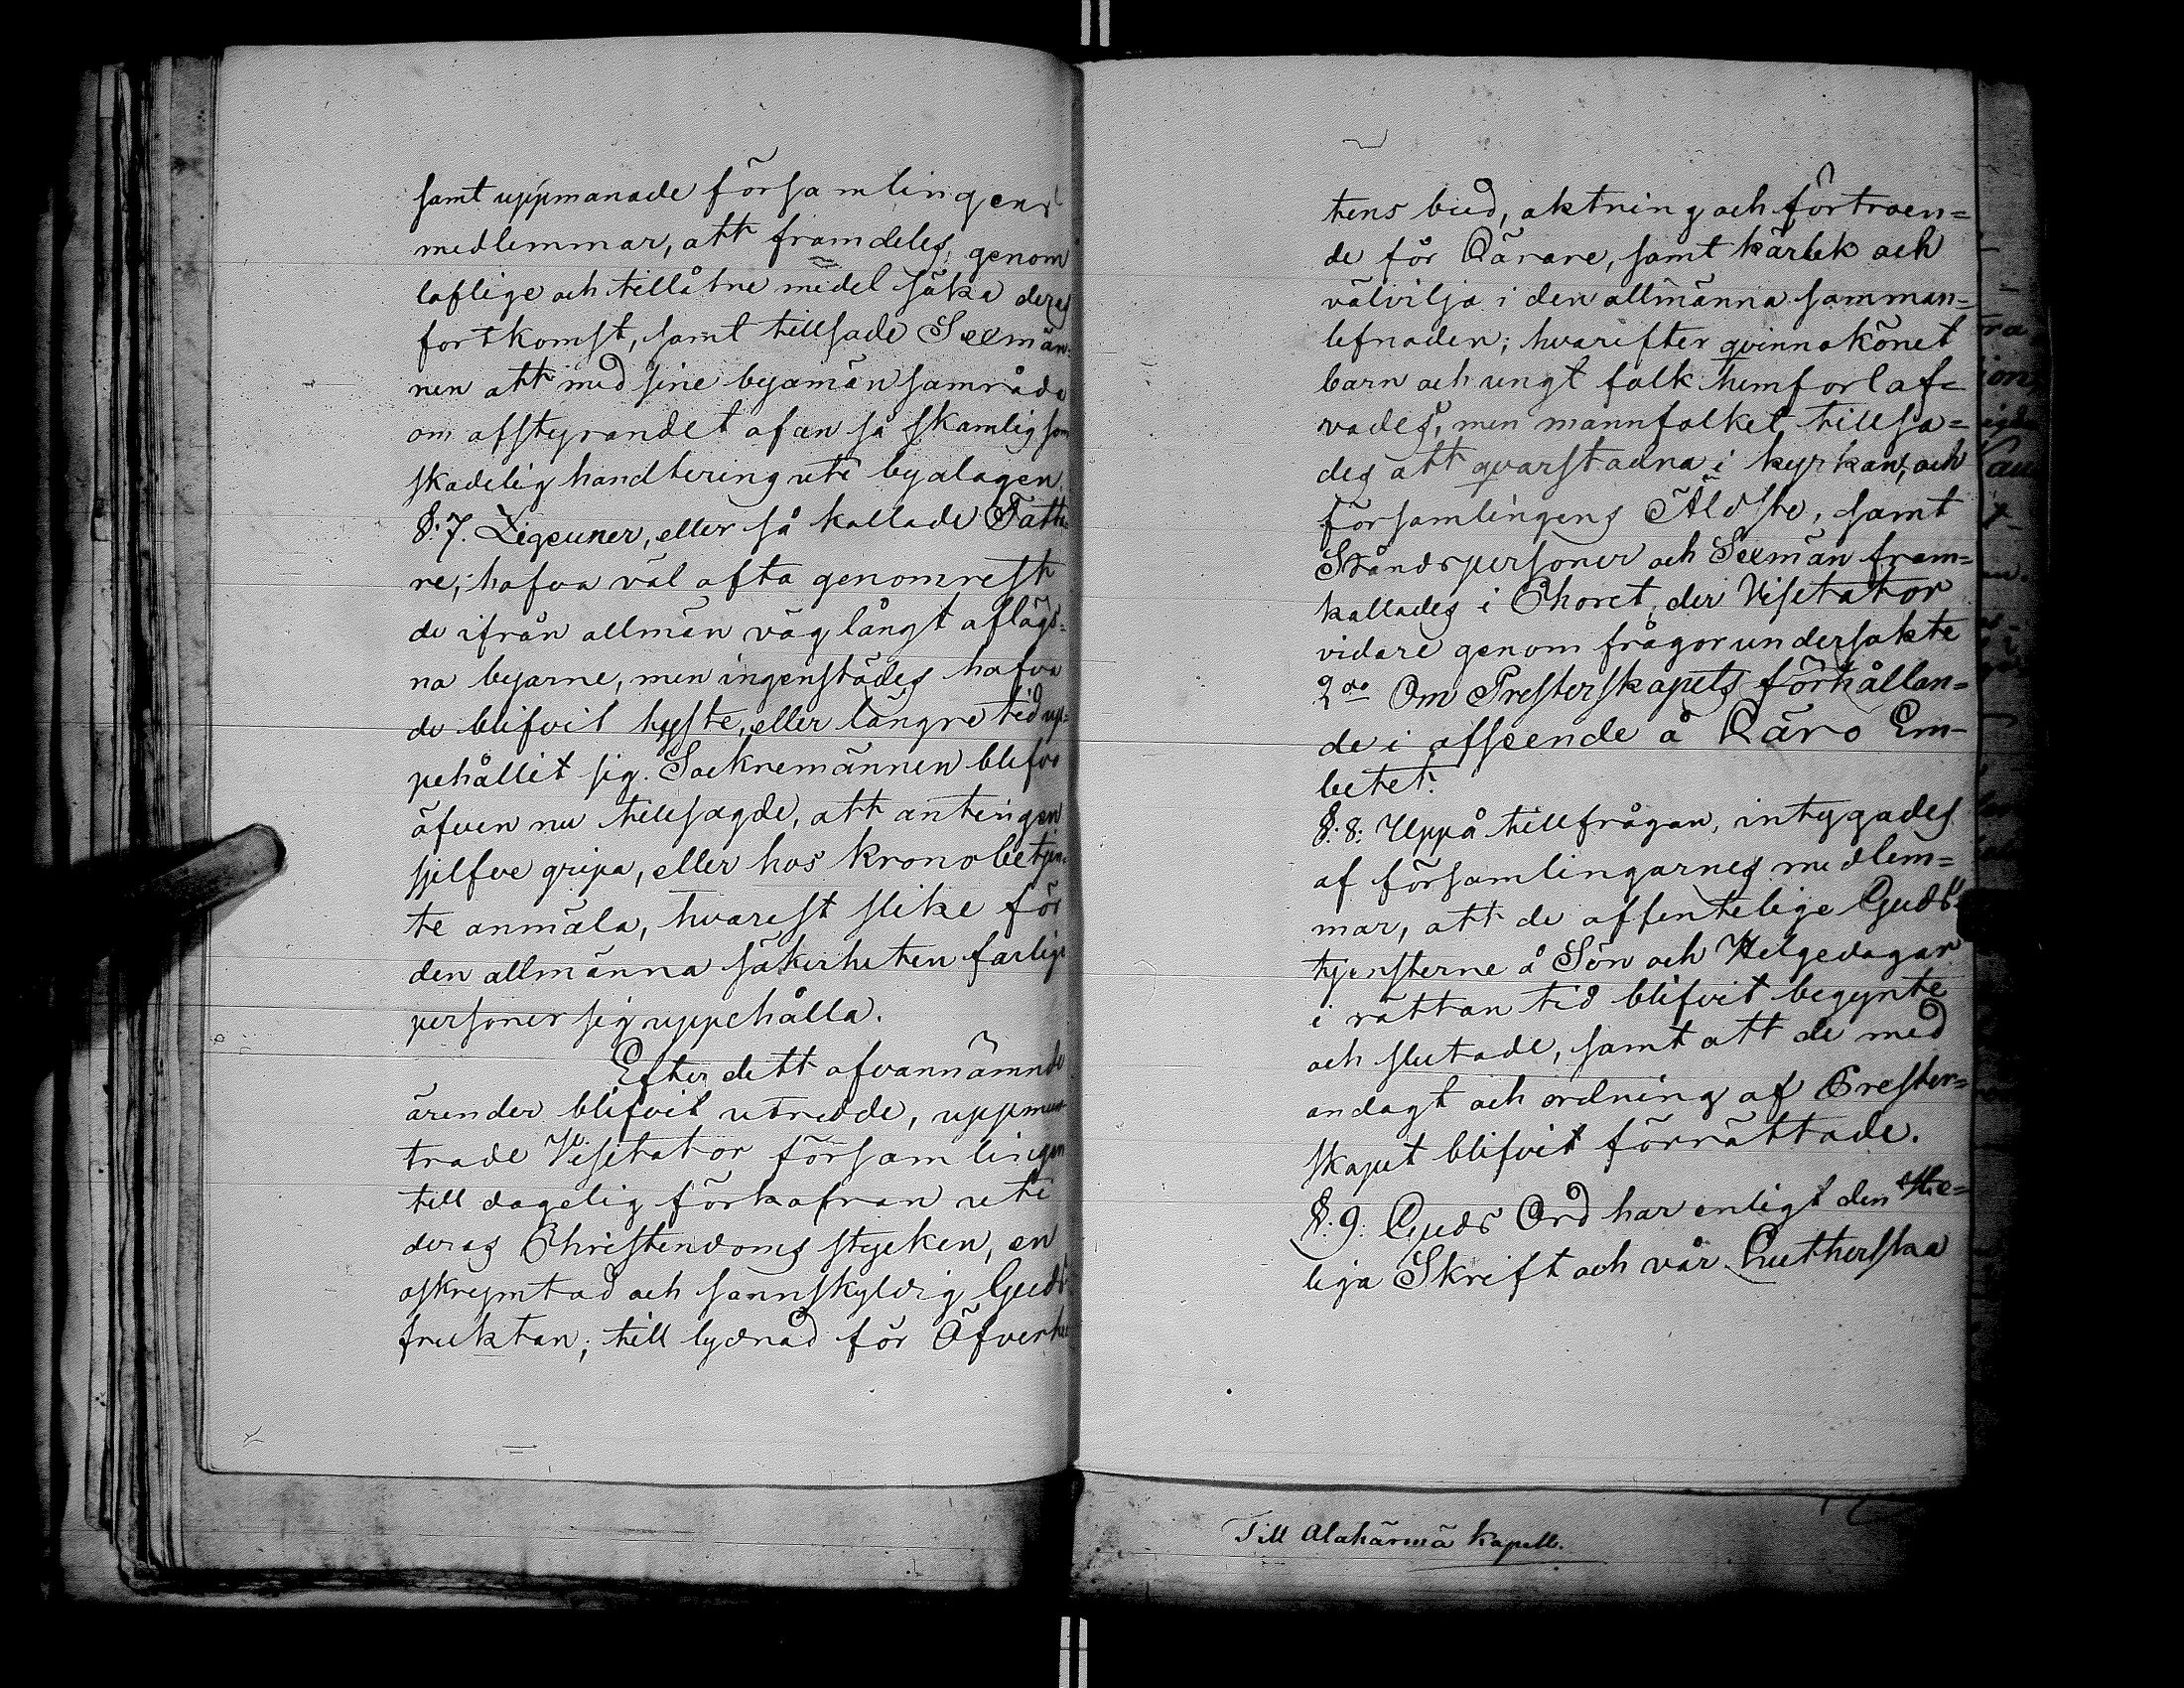 samt uppmanade församlingens
medlemmar, att framdeles genom
laflige och tillåtne medel söka deras
fortkomst, samt tillsade Sexmän-
nen att med sine byamän samråda
om afstyrandet af en så skamlig som
skadelig handtering uti byalagen.
§. 7. Zigeuner, eller så kallade Tatta-
re, hafva väl ofta genomrest
de ifrån allmän väg långt aflägs-
na byarne, men ingenstädes hafva
de blifvit hyste, eller längre tid up-
pehållit sig. Sockremännen blefvo
äfven nu tillsagde, att antingen
sjelfve gripa, eller hos kronobetjen-
te anmäla, hvarest slike för
den allmänna säkerheten farlige
personer sig uppehålla.
Efter dett ofvannämnde
ärender blifvit utredde, uppmun-
trade Visitator församlingen
till dagelig förkofran uti
deras Christendoms stycken, en
oskrymtad och sannskyldig Guds
fruktan; till lydnad för Öfverhe
tens bud, aktning och förtroen=
de för Lärare, samt kärlek och
välvilja i den allmänna samman=
lefnaden; hvarefter qvinnokönet
barn och ungt folk hemförlof=
vades, men mannfolket tillsa=
des att qvarstadna i kyrkan, och
församlingens Äldste, samt
Ståndspersoner och Sexmän fram=
kallades i Choret, der Visitator
vidare genom frågor undersökte
2do Om Presterskapets förhållan=
de i afseende å Läro Em-
betet.
§. 8: Uppå tillfrågan, intygades
af församlingarnes medlem=
mar, att de offentelige Guds-
tjensterne å Sön och Helgedagar
i rättan tid blifvit begynte
och slutade, samt att de med
andagt och ordning af Prester=
skapet blifvit förrättade.
§. 9: Guds Ord har enligt den He=
liga Skrift och vår Lutherska
Till Alahärmä Kapell.